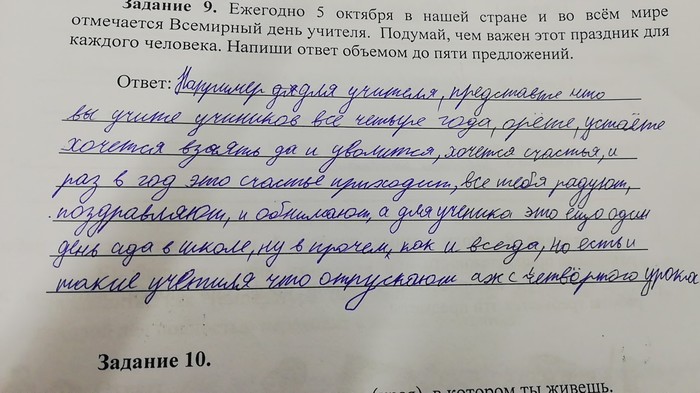 Задание 9. Ежегодно 5 октября в нашей стране и во всём мире
отмечается Всемирный день учителя. Подумай, чем важен этот праздник для
каждого человека. Напиши ответ объемом до пяти предложений.
Ответ: Например для учителя, представте что
вы учите учиников все четыре года, орёте, устаёте
хочется взять да и уволится, хочется счастья, и
раз в год это счастье приходит, все тебя радуют,
поздравляют, и обнимают, а для ученика это ещо один
день ада в школе, ну в прочем, как и всегда, но есть и
такие учетиля что отпускают аж с четвёртого урока
Задание 10.
в котором ты живешь.